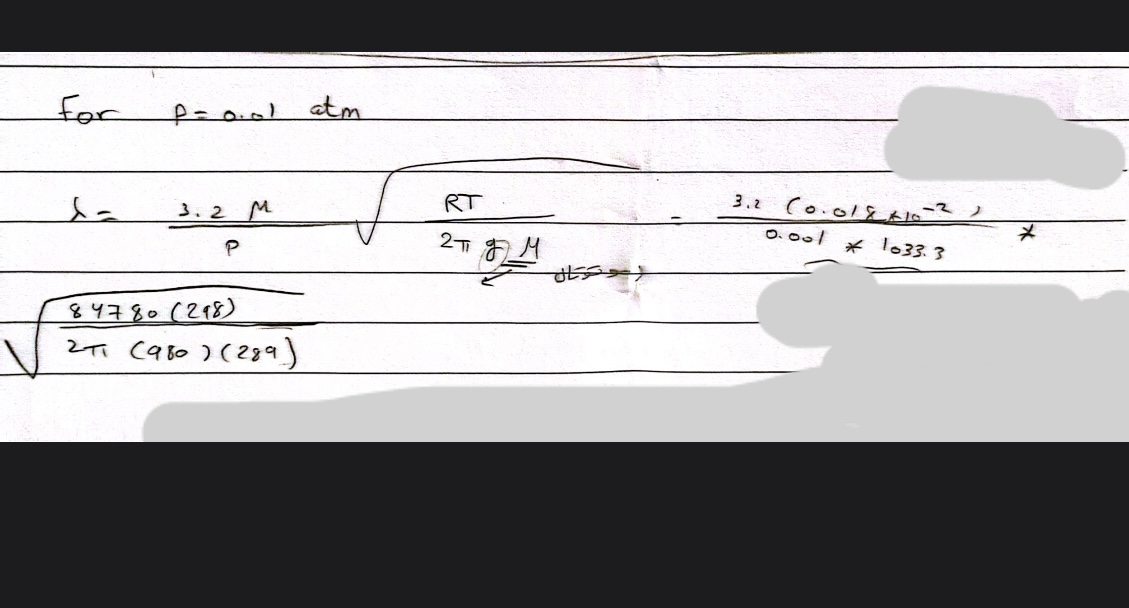 For P = 0.01 atm
λ = 3.2 M / P √ RT / 2π g M = 3.2 (0.018 * 10⁻²) / 0.001 * 1033.3 *
√ 84780 (298) / 2π (980) (289)